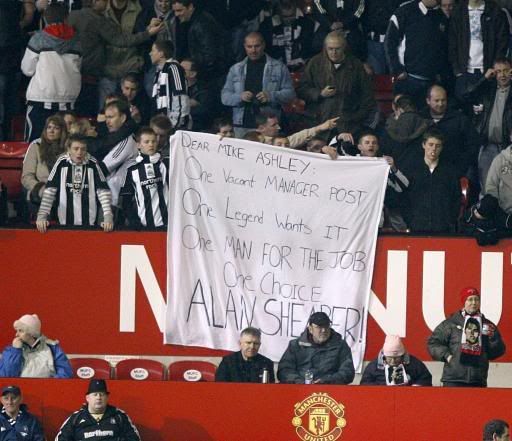 DEAR MIKE ASHLEY:
One Vacant MANAGER POST
One Legend Wants IT
One MAN FOR THE JOB
One Choice
ALAN SHEARER!
MANCHESTER
UNITED
northern